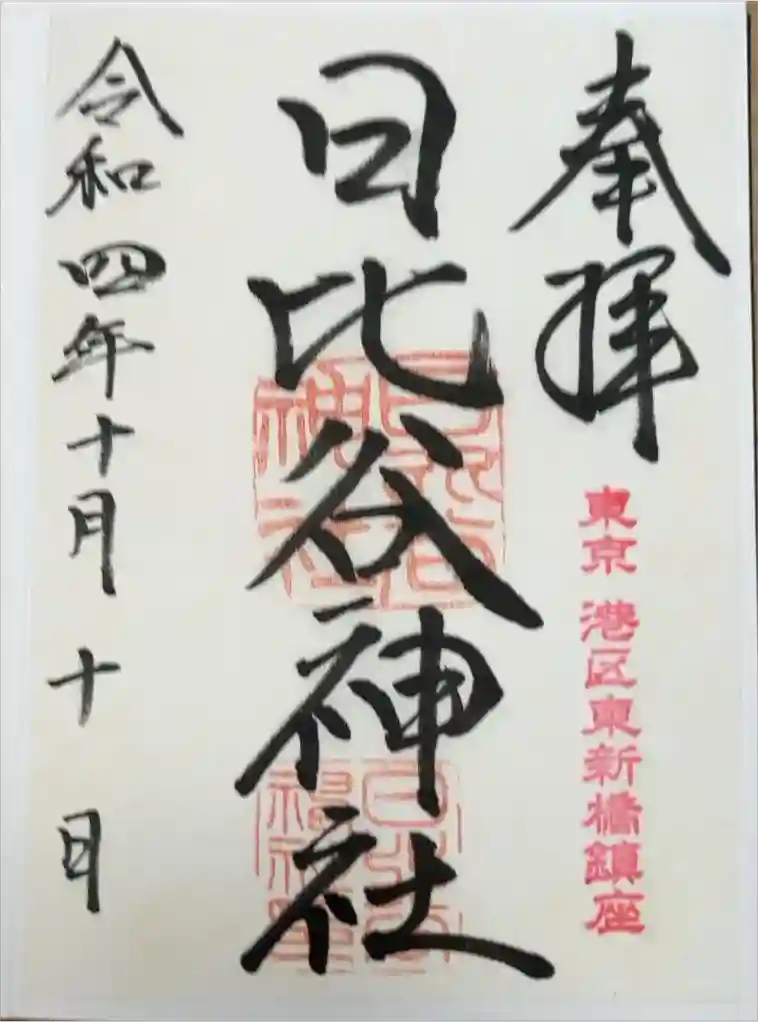 奉拝
東京 港区東新橋鎮座
日比谷神社
日比谷神社
令和四年十月十日